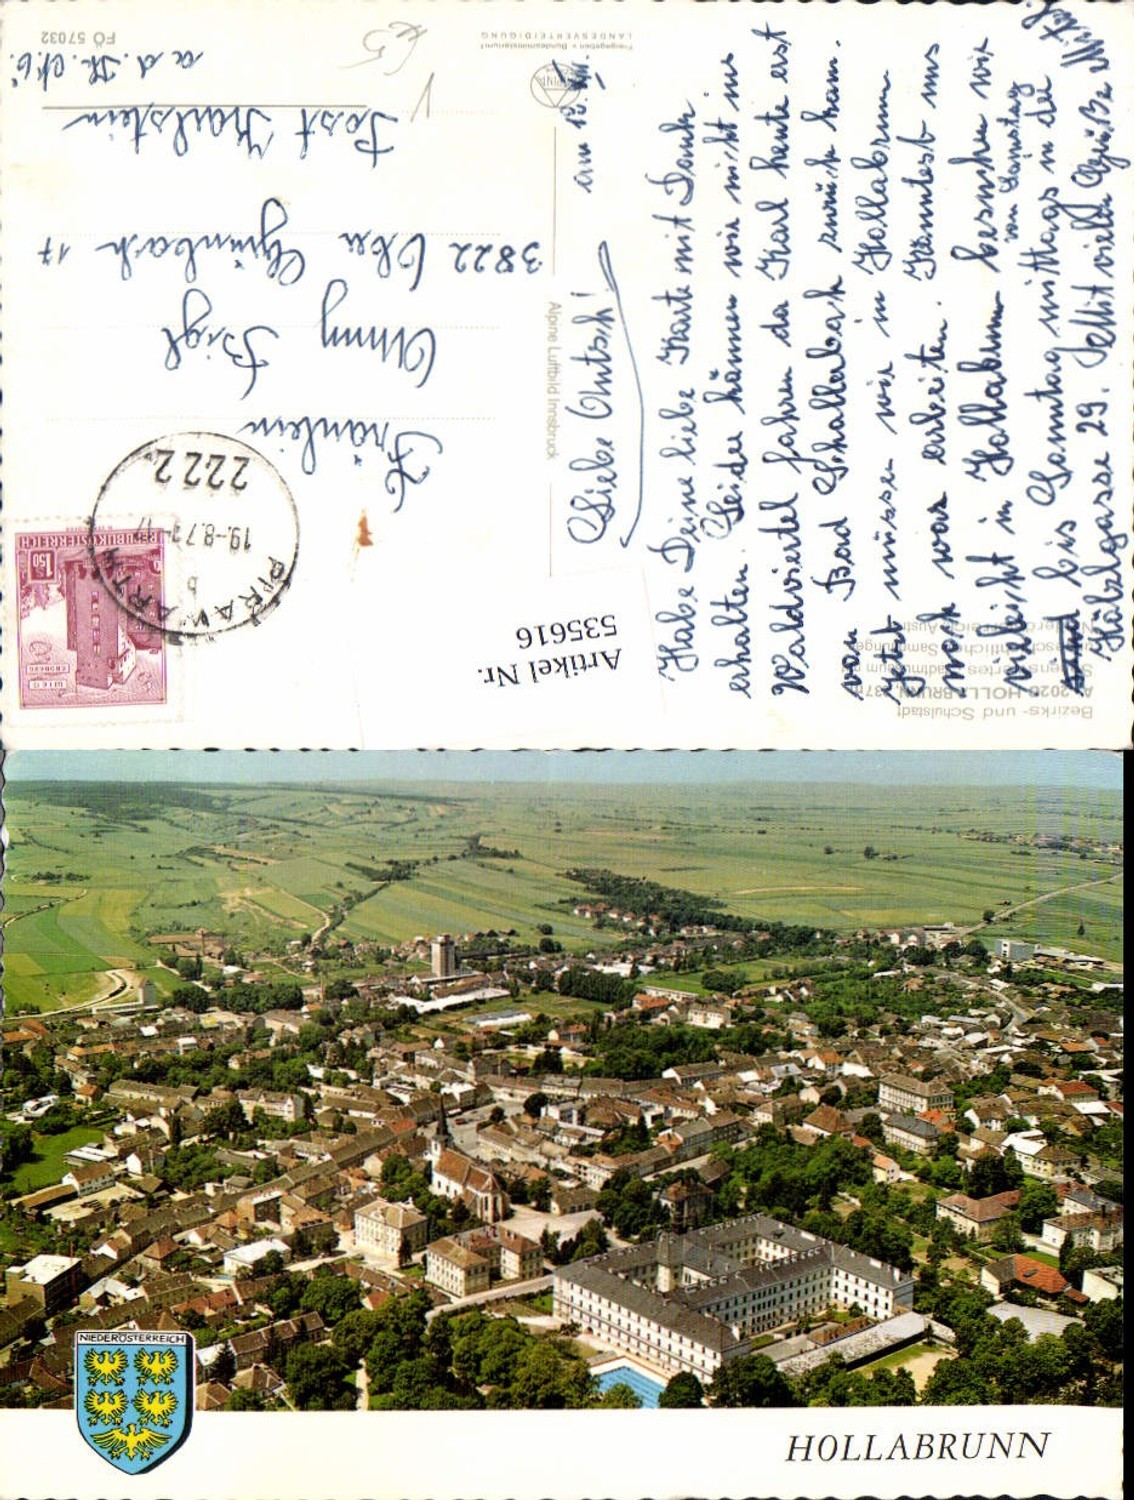 FÖ 57032
Freigegeben v. Bundesministerium f.
LANDESVERTEIDIGUNG
Alpine Luftbild Innsbruck
Bezirks- und Schulstadt
A 2020 HOLLABRUNN
am 18. VIII.
Liebe
Habe Deine liebe Karte mit Dank
erhalten. Leider können wir nicht ins
Waldviertel fahren da Karl heute erst
von Bad Schallerbach zurück kam.
Jetzt müssen wir in Hollabrunn
noch was arbeiten. Könntest uns
vielleicht in Hollabrunn besuchen wir
von Samstag
sind bis Sonntag mittags in der
Hölzlgasse 29. Seit viele Grüße
Fräulein
Sigl
3822 Ober Grünbach 17
Post Karlstein
a. d. Th. N.Ö.
€5
PIRAWARTH
b
19.-8.7
2222
REPUBLIK ÖSTERREICH
1.50
WIEN
Artikel Nr.
535616
NIEDERÖSTERREICH
HOLLABRUNN